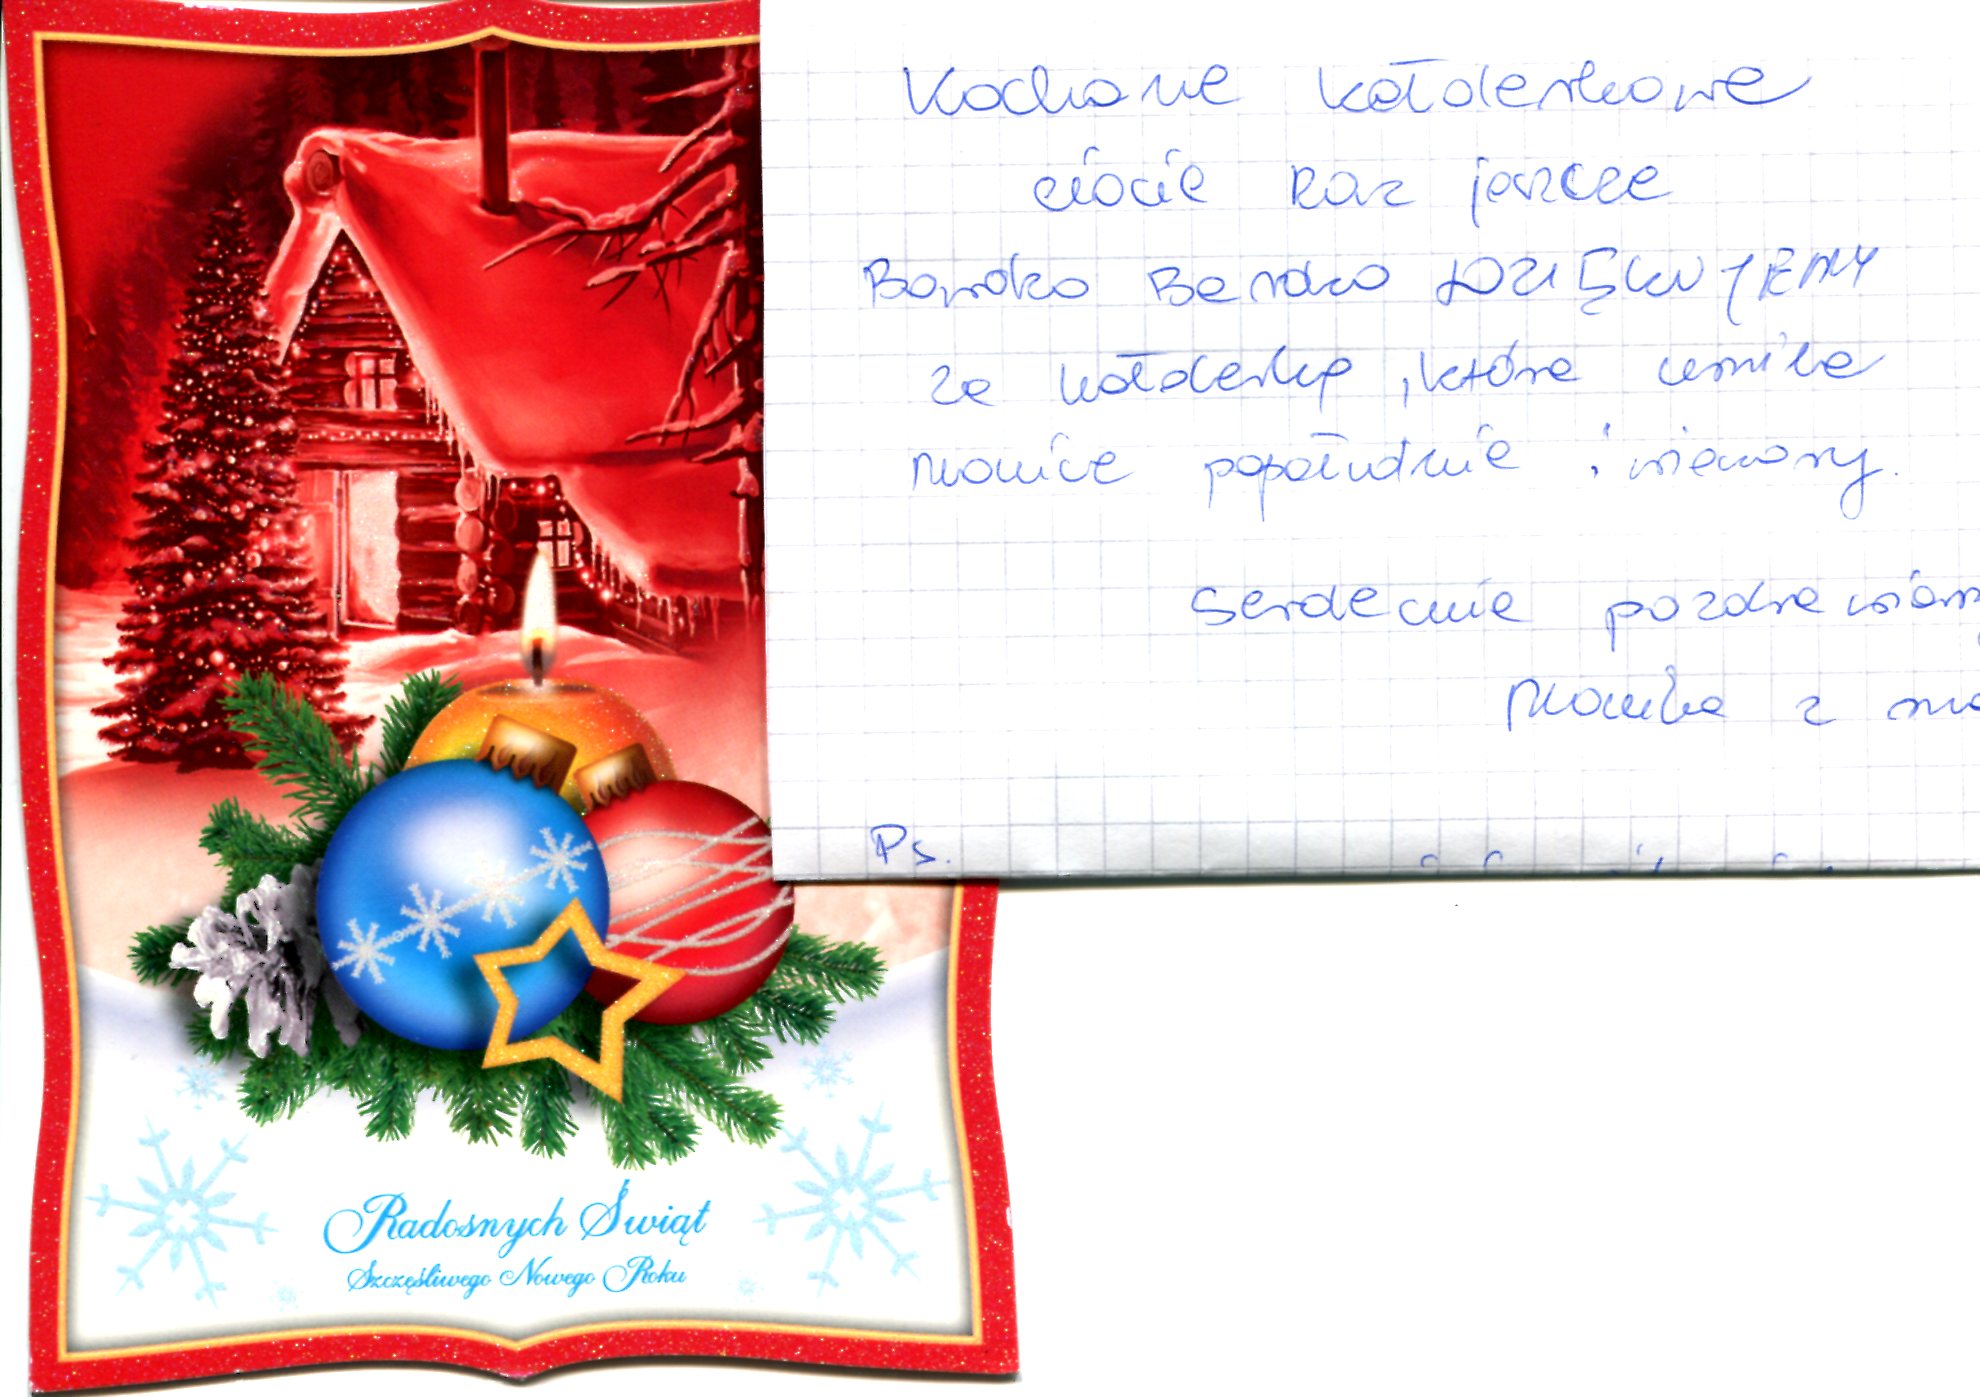 Kochane kołderkowe
ciocie raz jeszcze
Bardzo Bardzo DZIĘKUJEMY
za kołderkę, która umila
popołudnie i wieczory.
Serdecznie pozdrawiam
Monika z
Ps.
Radosnych Świąt
Szczęśliwego Nowego Roku